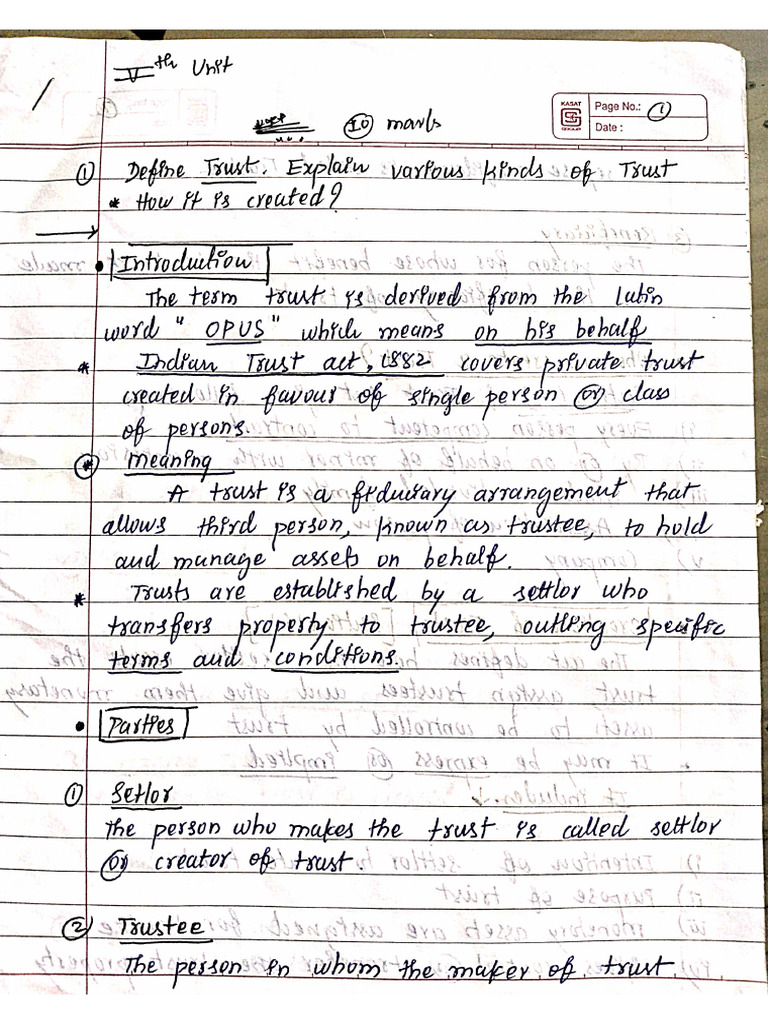 Vth Unit
10 marks
KASAT
GROUP
Page No.: 1
Date :
1 Define Trust. Explain various kinds of Trust
* How it is created?
Introduction
The term trust is derived from the latin
word "OPUS" which means on his behalf
* Indian Trust act, 1882 covers private trust
created in favour of single person or class
of persons.
* meaning
A trust is a fiduciary arrangement that
allows third person, known as trustee, to hold
and manage assets on behalf.
* Trusts are established by a settlor who
transfers property to trustee, outling specific
terms and conditions.
• Parties
1 Setlor
The person who makes the trust is called settlor
or creator of trust.
2 Trustee
The person in whom the maker of trust